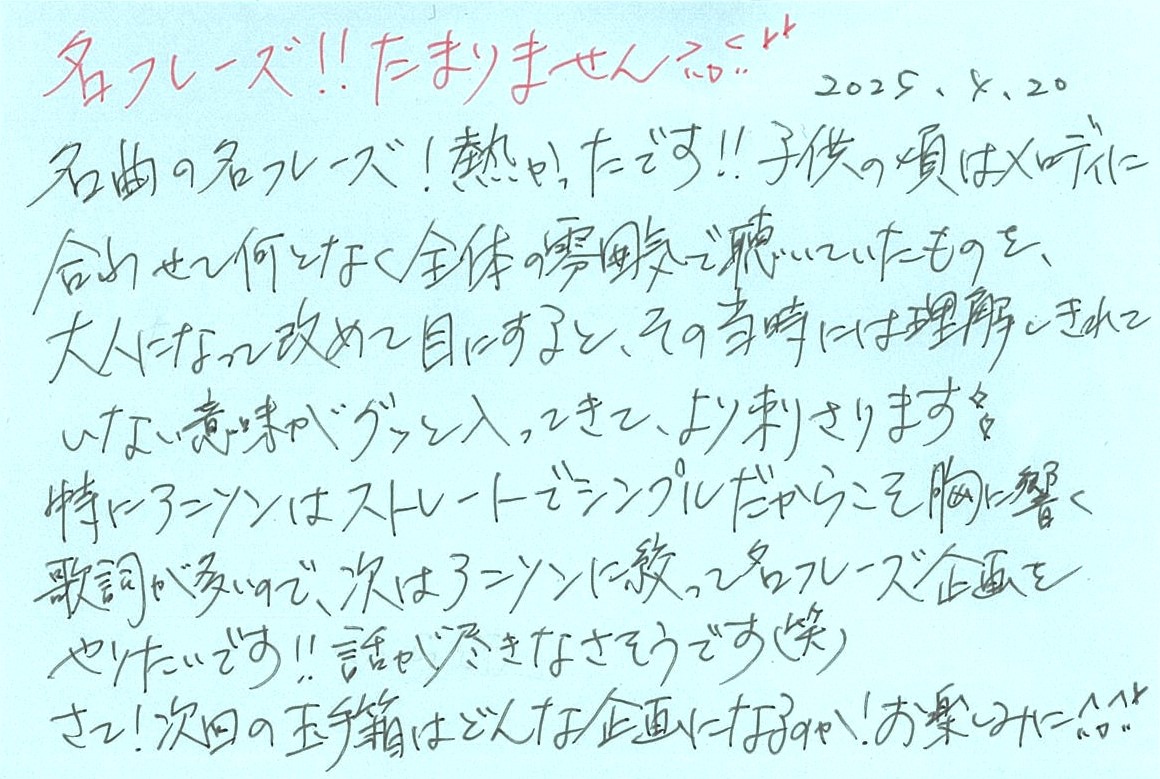 名フレーズ!!たまりません
2025.4.20
名曲の名フレーズ!熱かったです!!子供の頃はメロディに
合わせて何となく全体の雰囲気で聴いていたものを、
大人になって改めて目にすると、その当時には理解しきれて
いない意味がグッと入ってきて、より刺さります
特にアニソンはストレートでシンプルだからこそ胸に響く
歌詞が多いので、次はアニソンに絞って名フレーズ企画を
やりたいです!!話が尽きなさそうです(笑)
さて!次回の玉手箱はどんな企画になるのか!お楽しみに